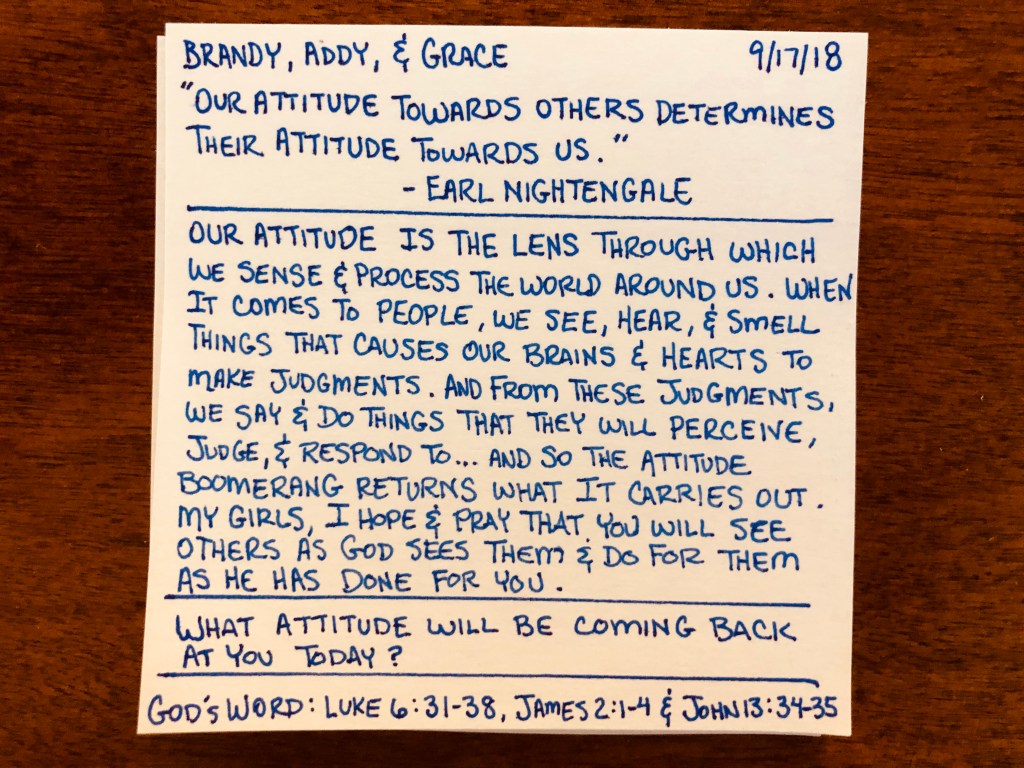 BRANDY, ADDY, & GRACE 9/17/18
"OUR ATTITUDE TOWARDS OTHERS DETERMINES
THEIR ATTITUDE TOWARDS US."
- EARL NIGHTENGALE
OUR ATTITUDE IS THE LENS THROUGH WHICH
WE SENSE & PROCESS THE WORLD AROUND US. WHEN
IT COMES TO PEOPLE, WE SEE, HEAR, & SMELL
THINGS THAT CAUSES OUR BRAINS & HEARTS TO
MAKE JUDGMENTS. AND FROM THESE JUDGMENTS,
WE SAY & DO THINGS THAT THEY WILL PERCEIVE,
JUDGE, & RESPOND TO... AND SO THE ATTITUDE
BOOMERANG RETURNS WHAT IT CARRIES OUT.
MY GIRLS, I HOPE & PRAY THAT YOU WILL SEE
OTHERS AS GOD SEES THEM & DO FOR THEM
AS HE HAS DONE FOR YOU.
WHAT ATTITUDE WILL BE COMING BACK
AT YOU TODAY?
GOD'S WORD: LUKE 6:31-38, JAMES 2:1-4 & JOHN 13:34-35